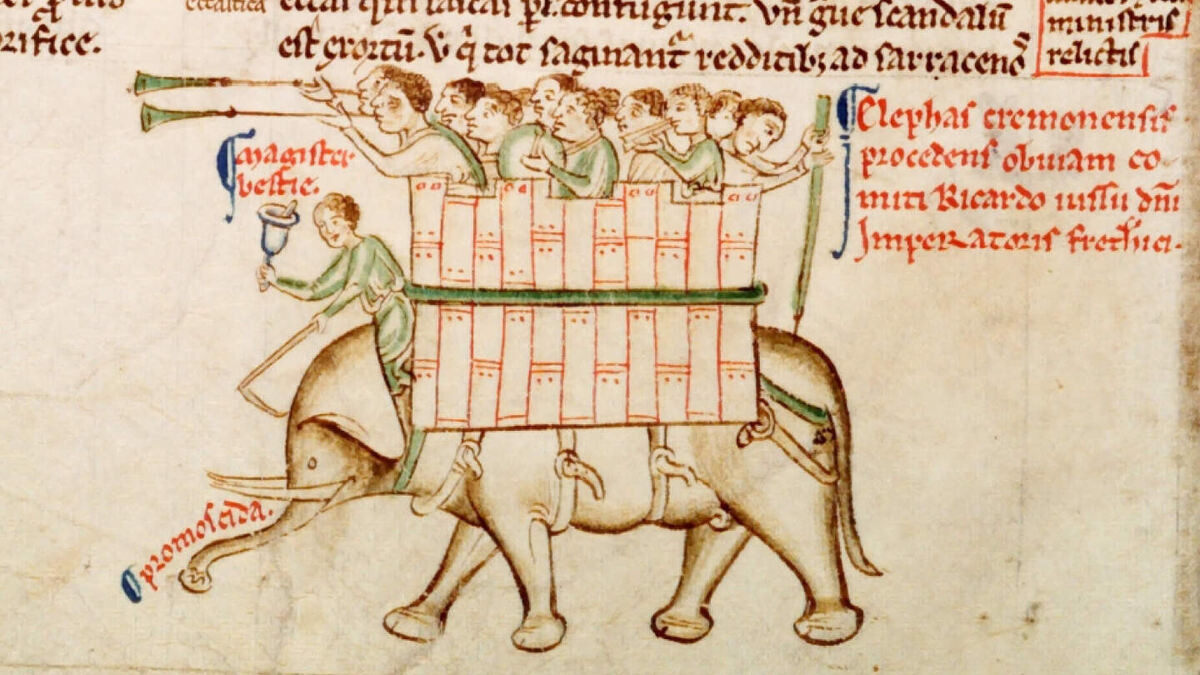 orifice.
est exortu. v q tot saginant redditib; ad sarraceno
ministris
relictis
magister
bestie.
Elephas cremonensis
procedens obuiam co-
miti Ricardo iussu dni
Imperatoris frethici.
promoscida.